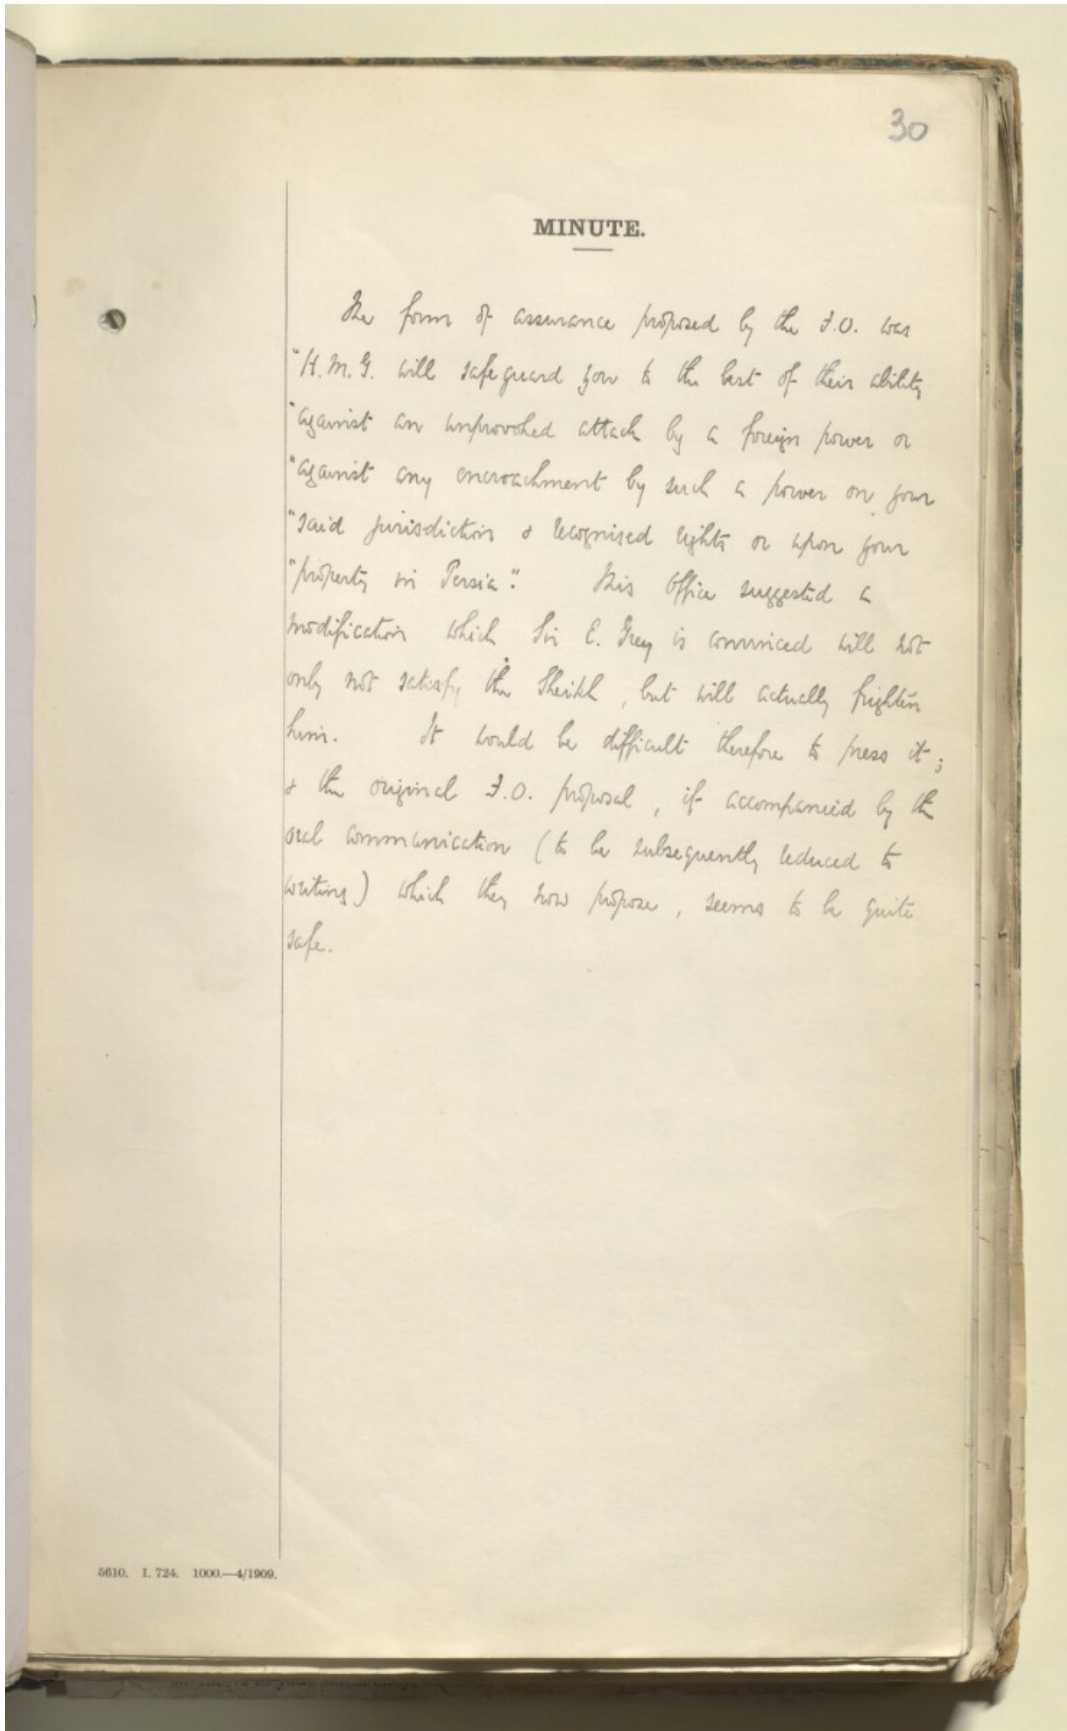 30
MINUTE.
The form of assurance proposed by the F.O. was
"H.M.G. will safeguard you to the best of their ability
"against an unprovoked attack by a foreign power or
"against any encroachment by such a power on your
"said jurisdiction & recognised rights or upon your
"property in Persia". This Office suggested a
modification which Sir E. Grey is convinced will not
only not satisfy the Sheikh, but will actually frighten
him. It would be difficult therefore to press it;
& the original F.O. proposal, if accompanied by the
oral communication (to be subsequently reduced to
writing) which they now propose, seems to be quite
safe.
5610. I. 724. 1000.—4/1909.